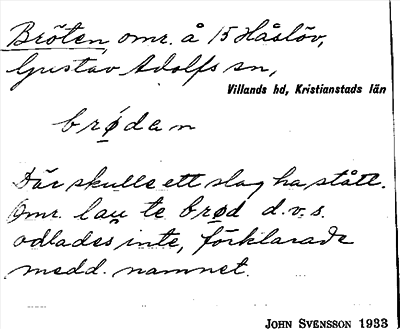 Bröten, omr. å 15 Håslöv,
Gustav Adolfs sn,
Villands hd, Kristianstads län
brødan
Där skulle ett slag ha stått.
Omr. lau te brød d.v.s.
odlades inte, förklarade
medd. namnet.
JOHN SVENSSON 1933